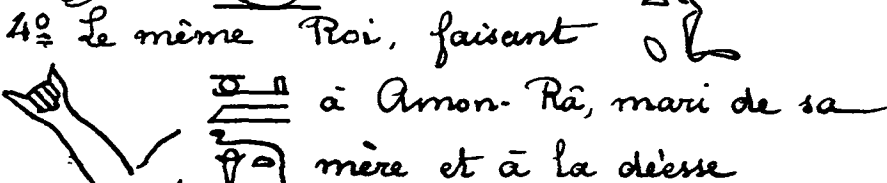 4º Le même Roi, faisant
à Amon-Râ, mari de sa
mère et à la déesse